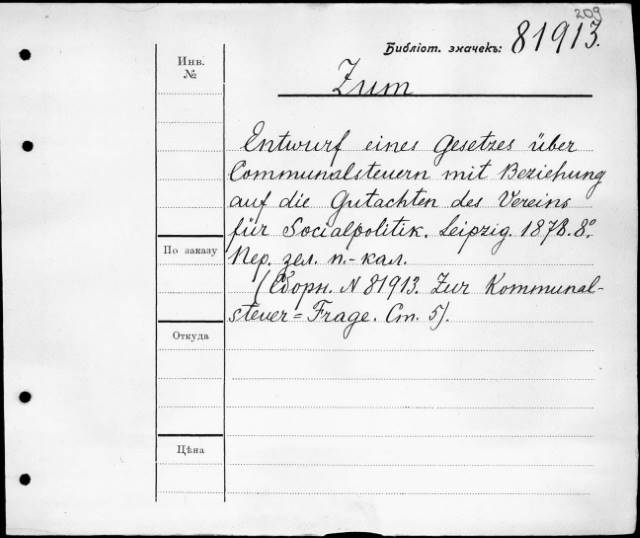 209
Библіот. значекъ: 81913.
Инв.
№
Zum
Entwurf eines Gesetzes über
Communalsteuern mit Beziehung
auf die Gutachten des Vereins
für Socialpolitik. Leipzig. 1878. 8º.
Пер. зел. п.-кал.
По заказу
(Сборн. N 81913. Zur Kommunal-
steuer=Frage. Ст. 5).
Откуда
Цѣна